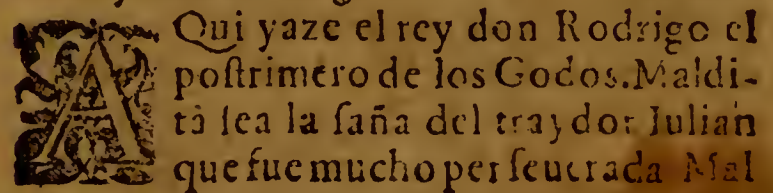 AQui yaze el rey don Rodrigo el
poſtrimero de los Godos. Maldi-
ta ſea la ſaña del traydor Iulian
que fue mucho perſeuerada Mal